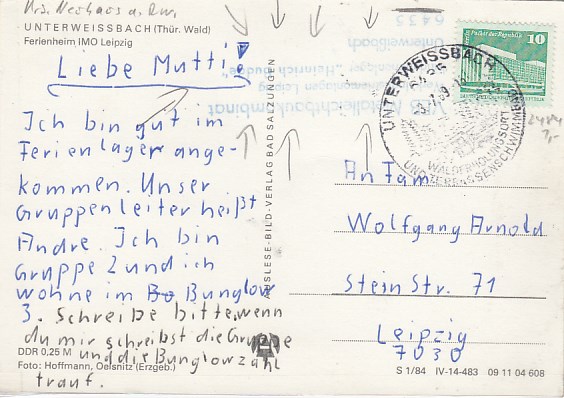 Krs. Neuhaus a. Rwg.
UNTERWEISSBACH (Thür. Wald)
Ferienheim IMO Leipzig
Liebe Mutti!
Ich bin gut im
Ferienlager ange-
kommen. Unser
Gruppenleiter heißt
Andre. Ich bin
Gruppe 2 und ich
wohne im Bunglow
3. Schreibe bitte, wenn
du mir schreibst die Gruppe
und die Bunglowzahl
trauf.
DDR 0,25 M
Foto: Hoffmann, Oelsnitz (Erzgeb.)
AUSLESE-BILD-VERLAG BAD SALZUNGEN
6435
Unterweißbach
"Heinrich Budde"
Metalleichtbaukombinat
UNTERWEISSBACH
WALDERHOLUNGSORT
Palast der Republik
10
DDR
2484
An Fam.
Wolfgang Arnold
Stein Str. 71
Leipzig
7030
S 1/84 IV-14-483 09 11 04 608